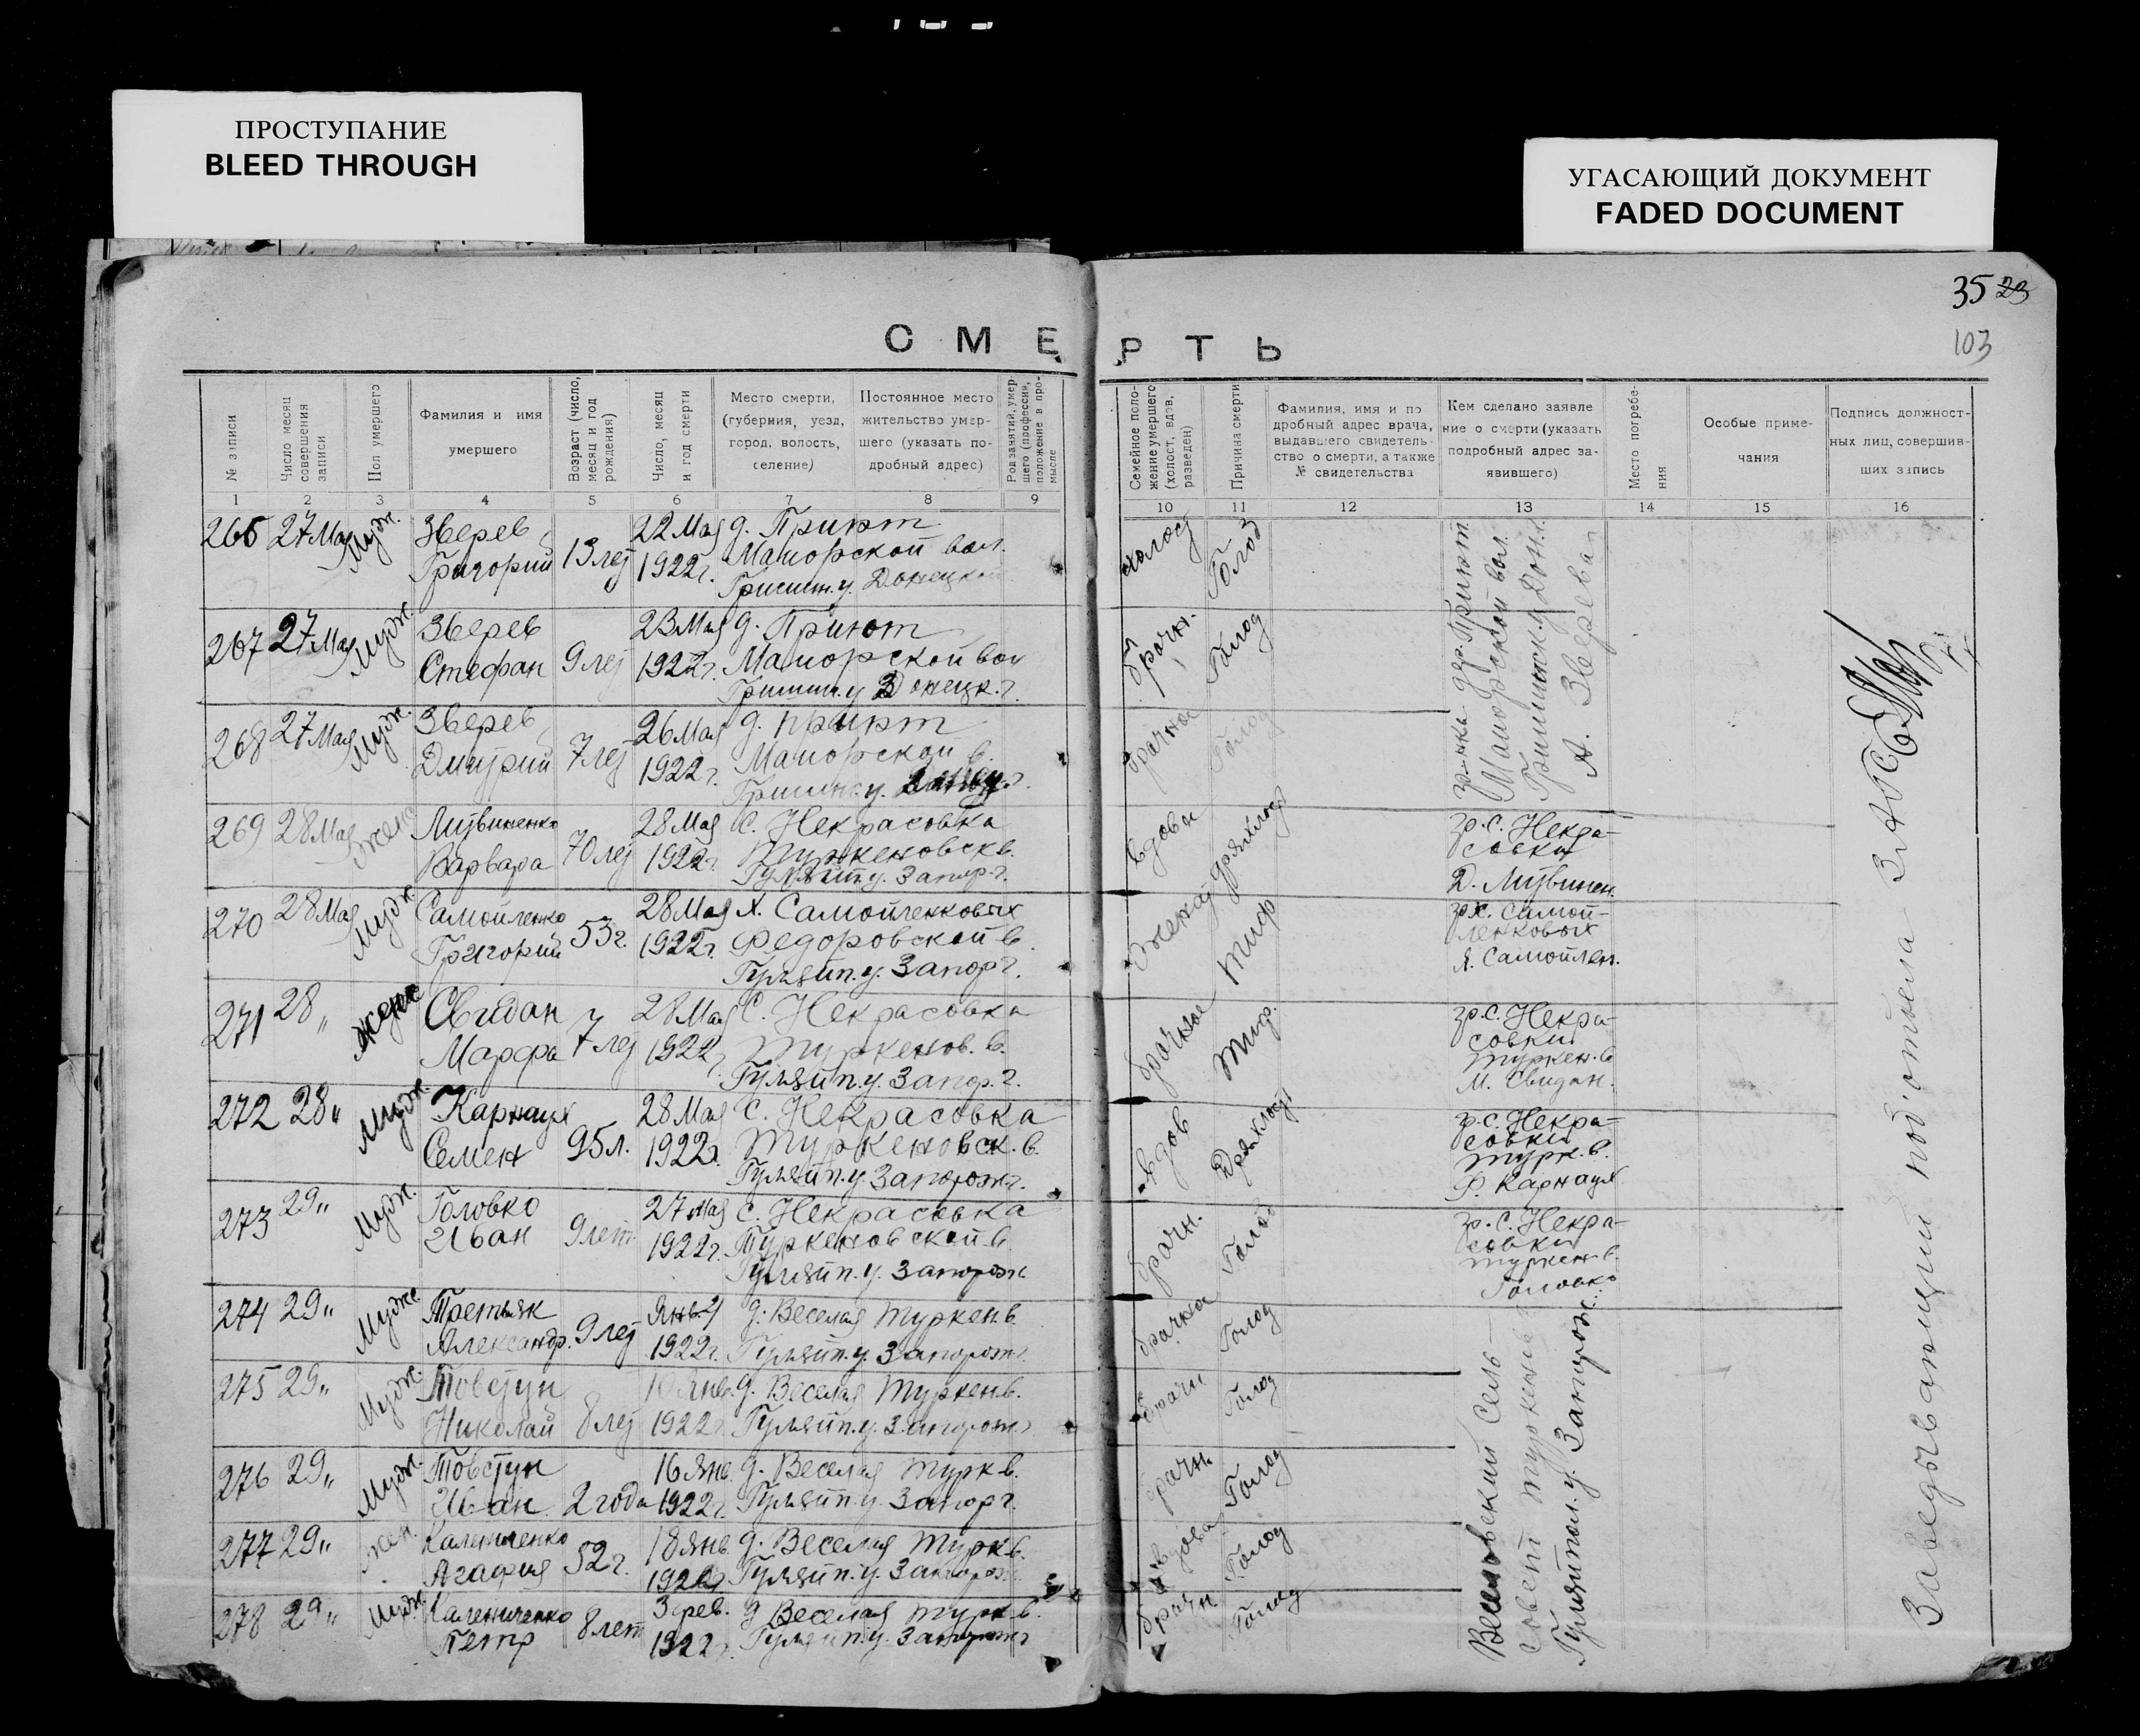 ПРОСТУПАНИЕ
BLEED THROUGH
УГАСАЮЩИЙ ДОКУМЕНТ
FADED DOCUMENT
35 23
103
СМЕРТЬ
№ записи
Число месяц совершения записи
Пол умершего
Фамилия и имя умершего
Возраст (число, месяц и год рождения)
Число, месяц и год смерти
Место смерти, (губерния, уезд, город, волость, селение)
Постоянное место жительство умершего (указать подробный адрес)
Род занятий, умершего (профессия, положение в промысле
Семейное положение умершего (холост, вдов, разведен)
Причина смерти
Фамилия, имя и подробный адрес врача, выдавшего свидетельство о смерти, а также № свидетельства
Кем сделано заявление о смерти (указать подробный адрес заявившего)
Место погребения
Особые примечания
Подпись должностных лиц, совершивших запись
1 2 3 4 5 6 7 8 9 10 11 12 13 14 15 16
265 27 Мая Мужс. Зверев Григорий 13 лет 22 Мая 1922 г. д. Приют Маиорской вол. Гришин. у. Донецкой холост Голод
267 27 Мая Мужс. Зверев Стефан 9 лет 23 Мая 1922 г. д. Приют Маиорской вол Гришин. у Донецк. г. брачн. Голод
268 27 Мая Мужс. Зверев Дмитрий 7 лет 26 Мая 1922 г. д. Приют Маиорской в. Гришинс. у. г. Голод
гр-нкы дер. Приют
Маиорской вол.
Гришинск у Дон. г.
А. Зверева
269 28 Мая женс Литвиненко Варвара 70 лет 28 Мая 1922 г. С. Некрасовка Туркеновск в. Гуляйп. у. Запор. г. вдова дряхлост гр. С. Некрасовки Д. Литвинен.
270 28 Мая Мужс Самойленко Григорий 53 г. 28 Мая 1922 г. х. Самойленковых Федоровской в Гуляйп. у. Запор г. женат Тиф гр х. Самойленковых Я. Самойлен.
271 28 „ женс Свидан Марфа 7 лет 28 Мая 1922 г С. Некрасовка Туркенов. в. Гуляйп. у. Запор. г. Тиф. гр. С. Некрасовки Туркен. в М. Свидан.
272 28 „ Мужс. Карнаух Семен 95 л. 28 Мая 1922 г. С. Некрасовка Туркеновск. в. Гуляйп. у. Запорож г. вдов Дряхлост гр. С. Некрасовки Турк. в. Ф. Карнаух
273 29 „ Мужс. Головко Иван 9 лет 27 Мая 1922 г. С. Некрасовка Туркеновской в. Гуляйп. у. Запорож г. брачн. Голод гр. С. Некрасовки Туркен в. Головко
274 29 „ Мужс Третьяк Александр. 9 лет Янв. 1922 г. д. Веселая Туркен в. Гуляйп. у. Запорож г. Голод
275 29 „ Мужс. Товстун Николай 8 лет 10 Янв. 1922 г. д. Веселая Туркен в. Гуляйп. у. Запорож г. брачн Голод
276 29 „ Мужс. Товстун Иван 2 года 16 Янв. 1922 г. д. Веселая Турк в. Гуляйп. у. Запор г. брачн. Голод
277 29 „ жен. Калениченко Агафия 52 г. 18 Янв. 1922 г д. Веселая Турк в. Гуляйп. у. Запорож. вдова Голод
278 29 „ Мужс Калениченко Петр 8 лет 3 фев. 1922 г. д Веселая Турк. в. Гуляйп. у. Запорож г брачн. Голод
Веселовский Сель-
совет Туркенов
Гуляйпол. у. Запорож.
Заведывающий под'отдела ЗАГС